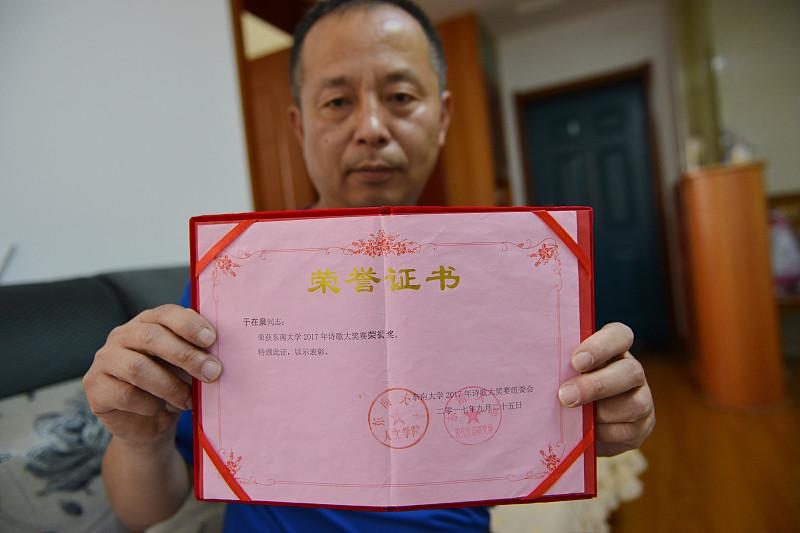 荣誉证书
于在泉同志：
荣获东南大学2017年诗歌大奖赛荣誉奖，
特颁此证，以示表彰。
东南大学2017年诗歌大奖赛组委会
二零一七年九月二十五日
人文学院